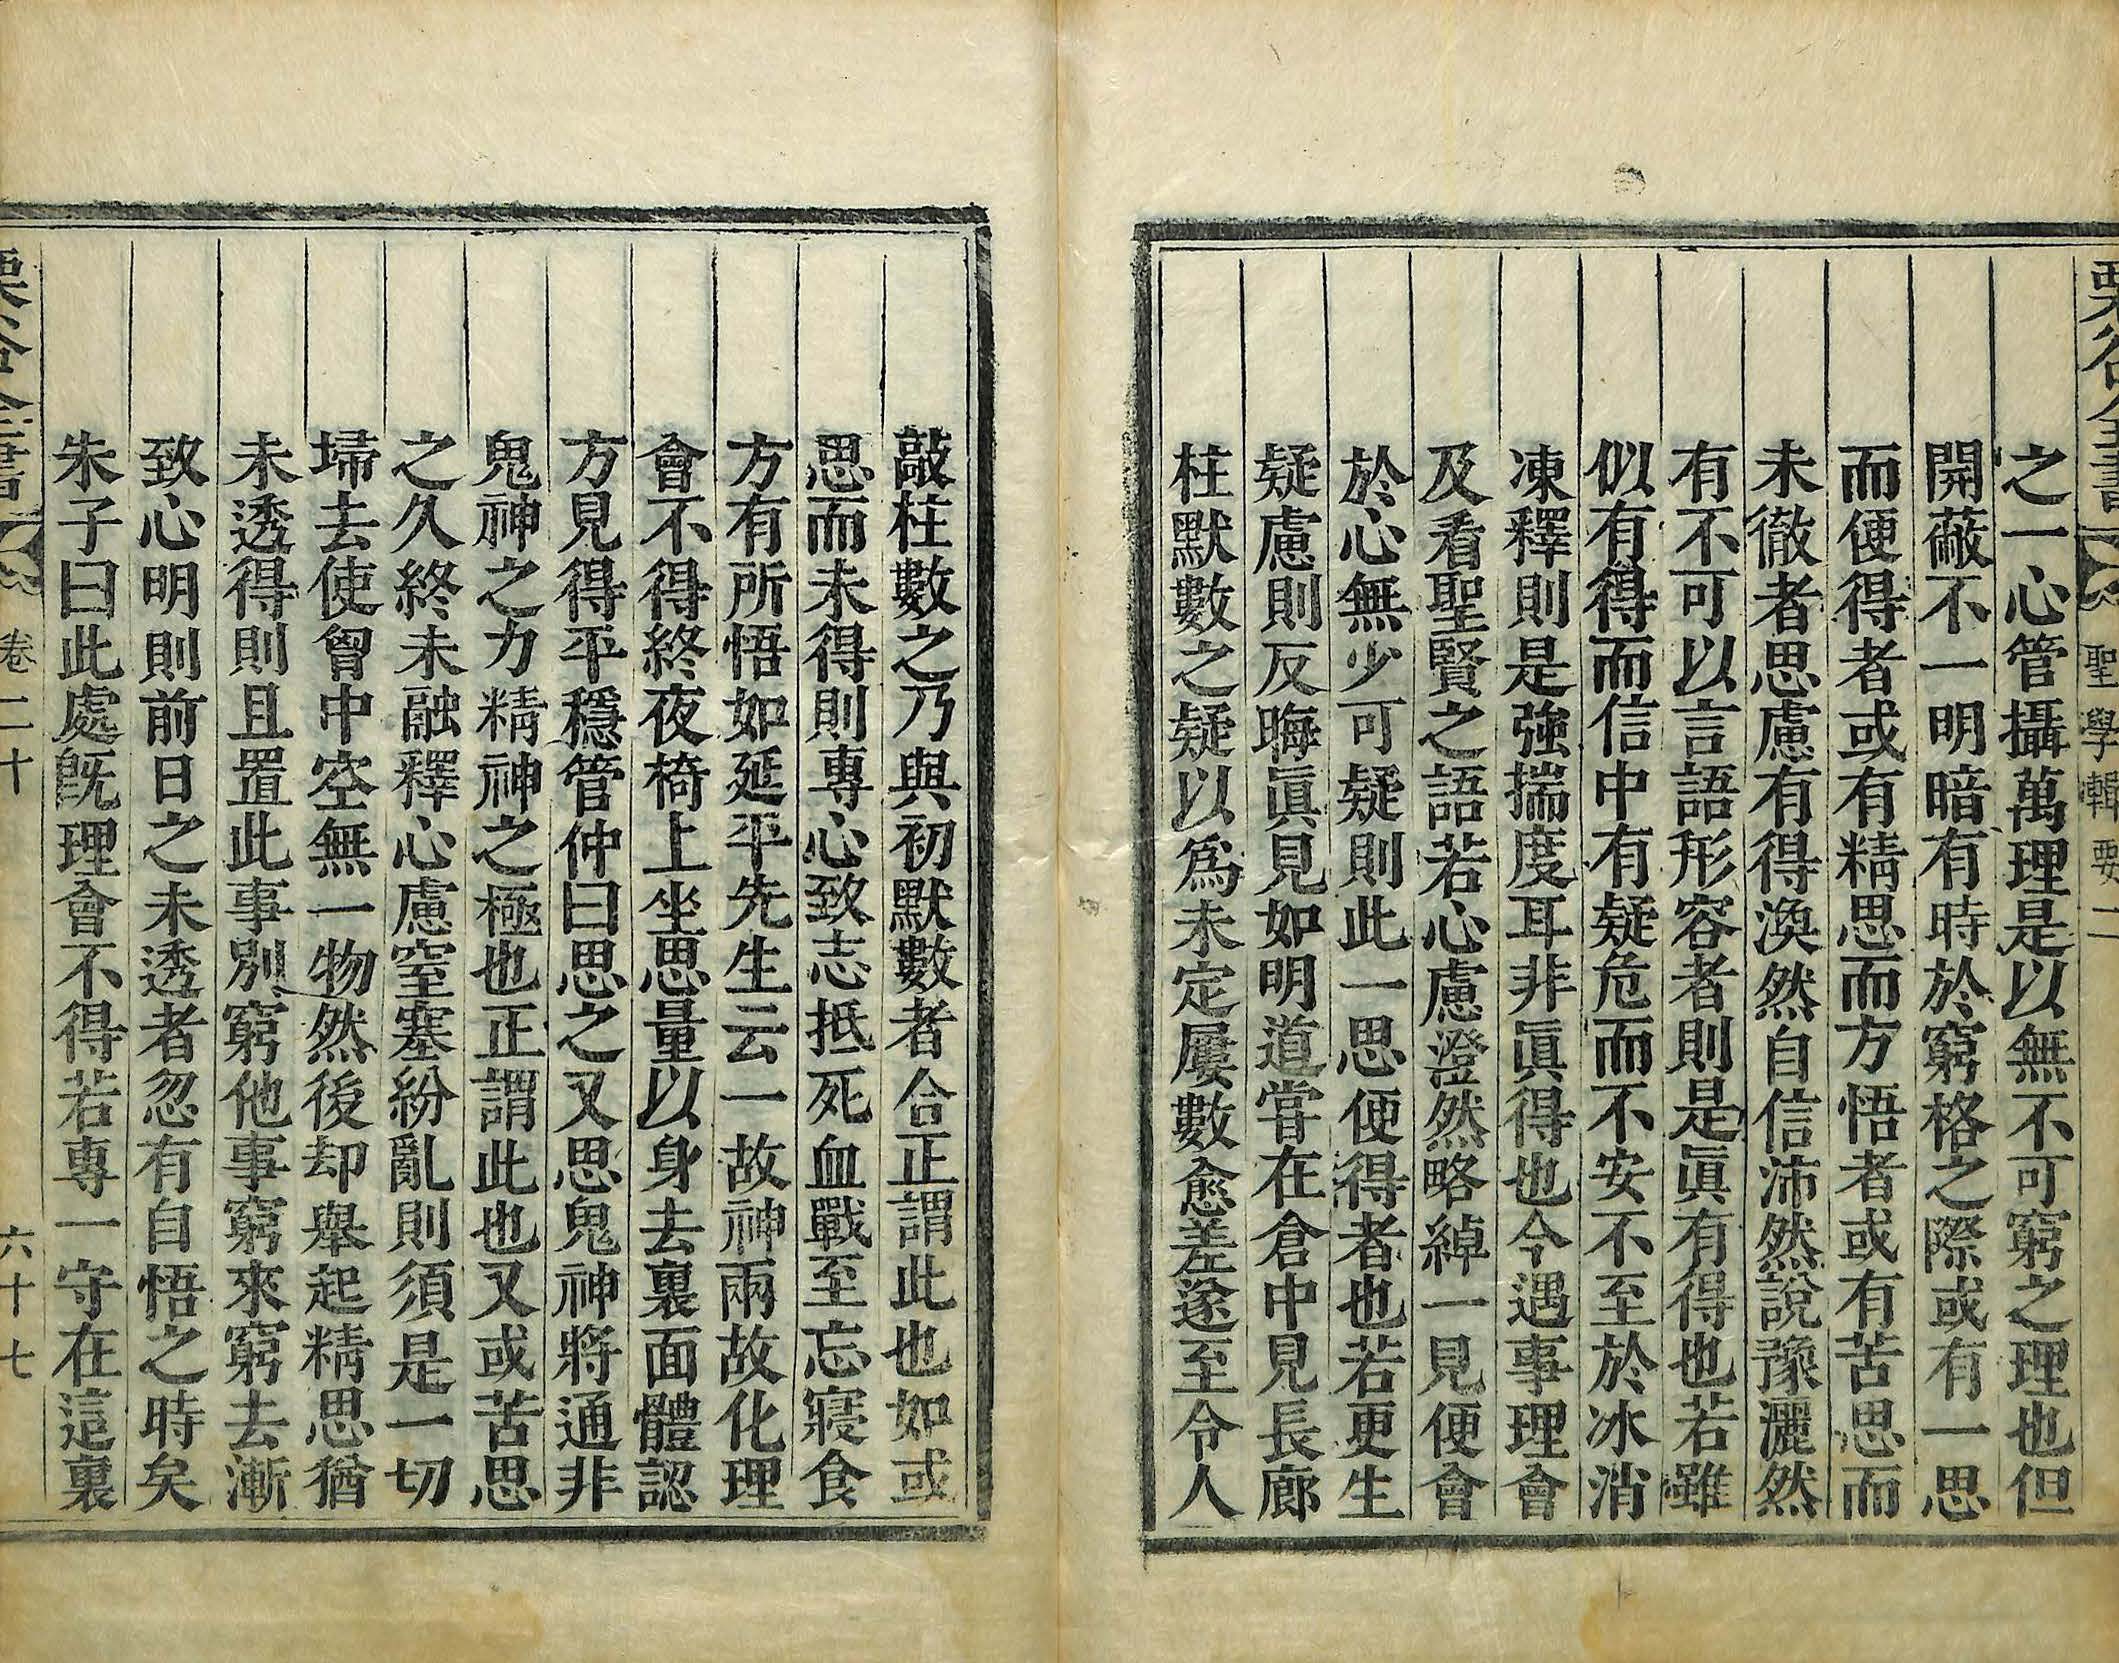 栗谷全書
聖學輯要二
之一心管攝萬理是以無不可窮之理也但
開蔽不一明暗有時於窮格之際或有一思
而便得者或有精思而方悟者或有苦思而
未徹者思慮有得渙然自信沛然說豫灑然
有不可以言語形容者則是眞有得也若雖
似有得而信中有疑危而不安不至於冰消
凍釋則是強揣度耳非眞得也今遇事理會
及看聖賢之語若心慮澄然略綽一見便會
於心無少可疑則此一思便得者也若更生
疑慮則反晦眞見如明道嘗在倉中見長廊
柱默數之疑以爲未定屢數愈差遂至令人
敲柱數之乃與初默數者合正謂此也如或
思而未得則專心致志抵死血戰至忘寢食
方有所悟如延平先生云一故神兩故化理
會不得終夜椅上坐思量以身去裏面體認
方見得平穩管仲曰思之又思鬼神將通非
鬼神之力精神之極也正謂此也又或苦思
之久終未融釋心慮窒塞紛亂則須是一切
埽去使曾中空無一物然後却舉起精思猶
未透得則且置此事別窮他事窮來窮去漸
致心明則前日之未透者忽有自悟之時矣
朱子曰此處旣理會不得若專一守在這裏
栗谷全書
卷二十
六十七